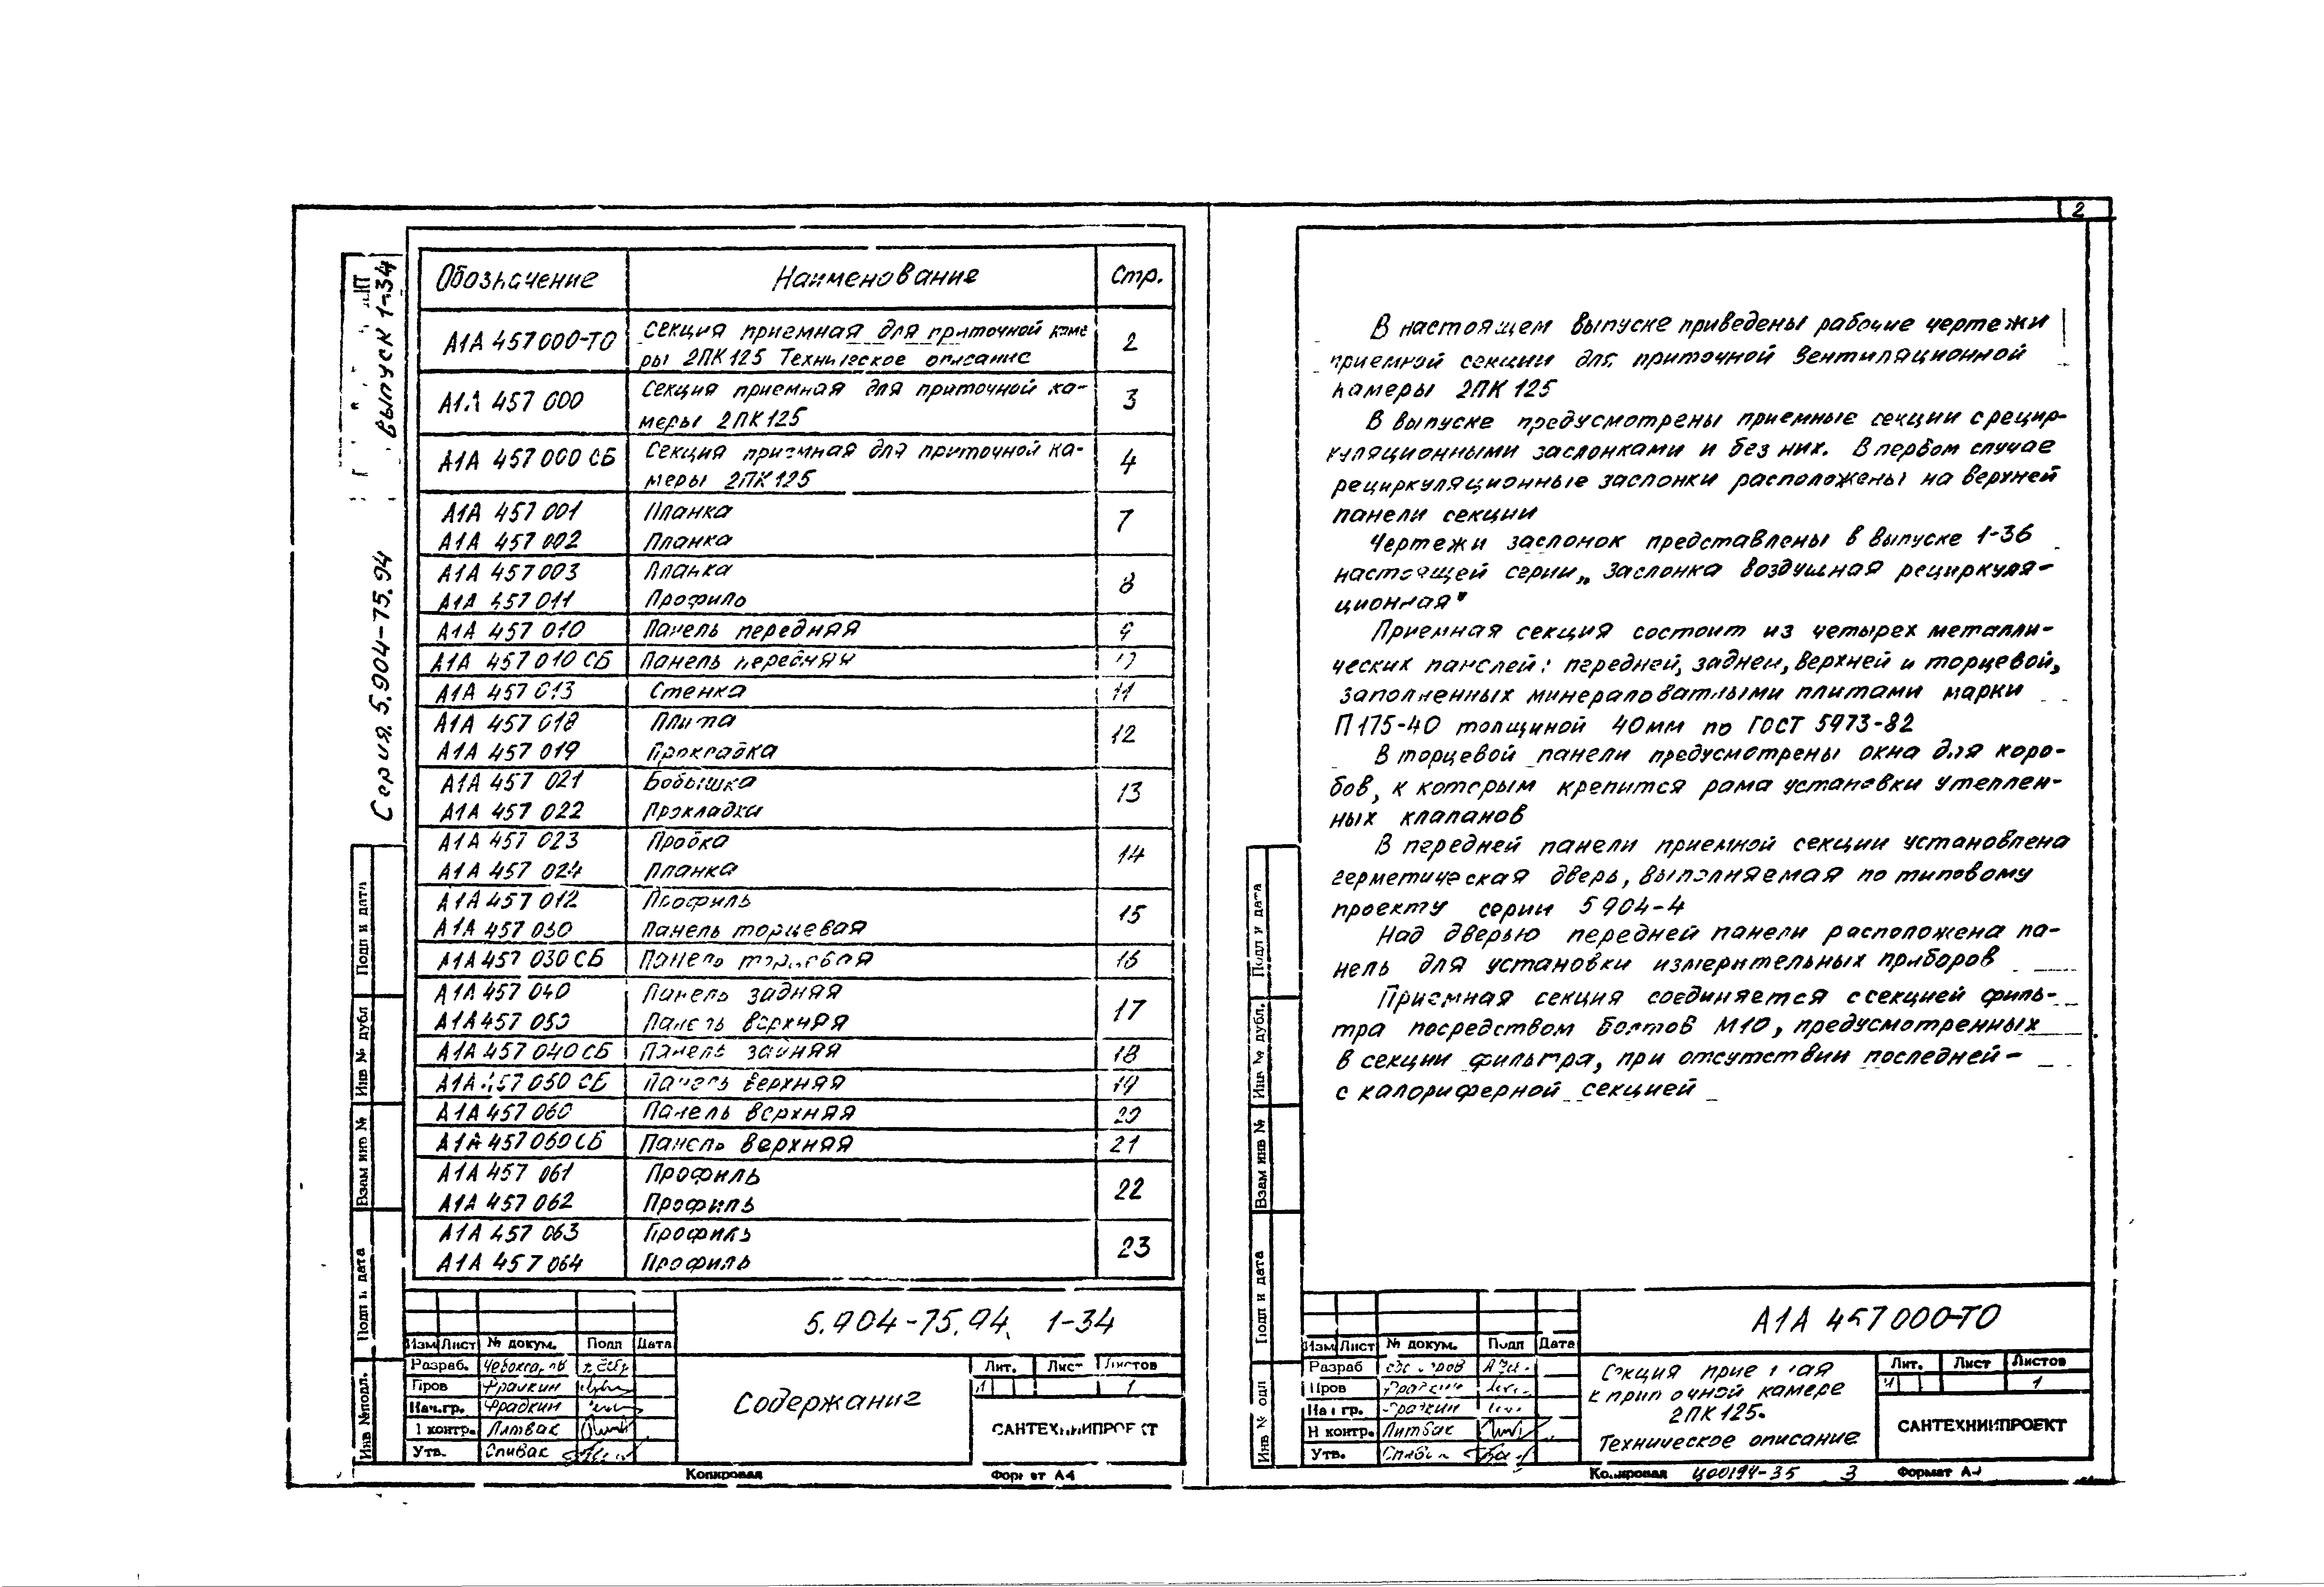 2
Серия 5.904-75.94 выпуск 1-34
Обозначение Наименование Стр.
А1А 457000-ТО Секция приемная для приточной каме
ры 2ПК125 Техническое описание 2
А1А 457 000 Секция приемная для приточной ка-
меры 2ПК125 3
А1А 457 000 СБ Секция приемная для приточной ка-
меры 2ПК125 4
А1А 457 001 Планка 7
А1А 457 002 Планка
А1А 457 003 Планка 8
А1А 457 011 Профиль
А1А 457 010 Панель передняя 9
А1А 457 010 СБ Панель передняя
А1А 457 013 Стенка 11
А1А 457 018 Плита 12
А1А 457 019 Прокладка
А1А 457 021 Бобышка 13
А1А 457 022 Прокладка
А1А 457 023 Пробка 14
А1А 457 024 Планка
А1А 457 012 Профиль 15
А1А 457 030 Панель торцевая
А1А 457 030 СБ Панель торцевая 16
А1А 457 040 Панель задняя 17
А1А 457 050 Панель верхняя
А1А 457 040 СБ Панель задняя 18
А1А 457 050 СБ Панель верхняя 19
А1А 457 060 Панель верхняя 20
А1А 457 060 СБ Панель верхняя 21
А1А 457 061 Профиль 22
А1А 457 062 Профиль
А1А 457 063 Профиль 23
А1А 457 064 Профиль
Подп и дата
Инв № дубл
Взам инв №
Подп и дата
Инв №подл.
5.904-75.94 1-34
Изм Лист № докум. Подп Дата
Разраб.
Пров Фрадкин
Нач.гр. Фрадкин
контр. Литвак
Утв. Спивак
Содержание
Лит. Лист Листов
И 1
САНТЕХНИИПРОЕКТ
Копировал Формат А4
В настоящем выпуске приведены рабочие чертежи
приемной секции для приточной вентиляционной
камеры 2ПК 125
В выпуске предусмотрены приемные секции с рецир-
куляционными заслонками и без них. В первом случае
рециркуляционные заслонки расположены на верхней
панели секции
Чертежи заслонок представлены в выпуске 1-36
настоящей серии „Заслонка воздушная рециркуля-
ционная"
Приемная секция состоит из четырех металли-
ческих панелей: передней, задней, верхней и торцевой,
заполненных минераловатными плитами марки
П175-40 толщиной 40мм по ГОСТ 5973-82
В торцевой панели предусмотрены окна для коро-
бов, к которым крепится рама установки утеплен-
ных клапанов
В передней панели приемной секции установлена
герметическая дверь, выполняемая по типовому
проекту серии 5 904-4
Над дверью передней панели расположена па-
нель для установки измерительных приборов
Приемная секция соединяется с секцией филь-
тра посредством болтов М10, предусмотренных
в секции фильтра, при отсутствии последней-
с калориферной секцией
Подп и дата
Инв № дубл.
Взам инв №
Подп и дата
Инв №
А1А 457000-ТО
Изм Лист № докум. Подп Дата
Разраб
Пров Фрадкин
Нач гр. Фрадкин
Н контр. Литвак
Утв. Спивак
Секция приемная
к приточной камере
2ПК125.
Техническое описание
Лит. Лист Листов
И 1
САНТЕХНИИПРОЕКТ
Копировал Ц00194-35 3 Формат А4